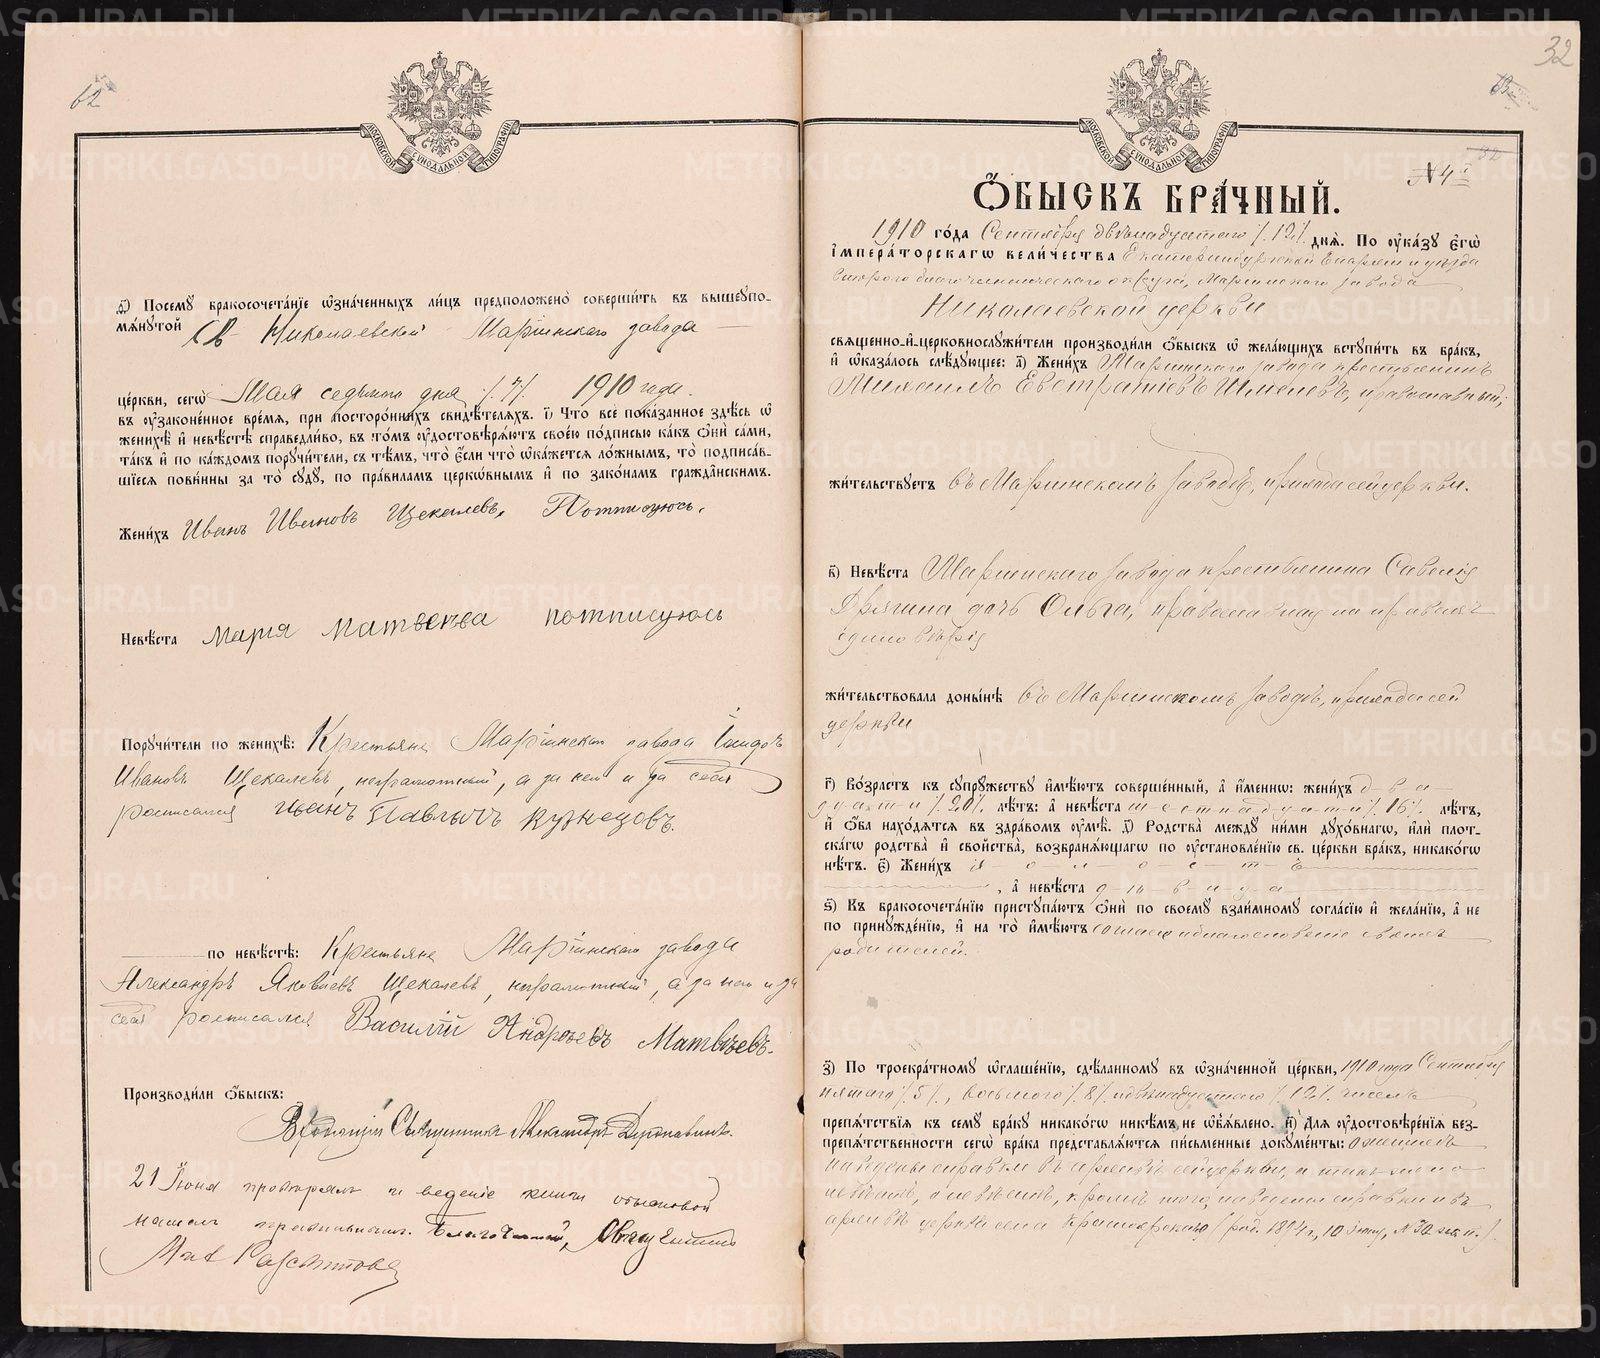 62
МОСКОВСКОЙ СѶНОДАЛЬНОЙ ТИПОГРАФІИ
з҃) Посемꙋ бракосочета́нїе ѡ҆зна́ченныхъ ли́цъ предположено̀ соверши́ть въ вышеꙋпо-
мѧ́нꙋтой Св Николаевской Марiинскаго завода
це́ркви, сегѡ̀ Мая седьмого дня /.7/. 1910 года.
въ ᲂу҆зако́ненное вре́мѧ, при посторо́ннихъ свидѣ́телѧхъ. і҃) Что̀ всѐ пока́занное здѣ́сь ѡ҆
женихѣ̀ и҆ невѣ́стѣ справедли́во, въ то́мъ ᲂу҆достовѣрѧ́ютъ свое́ю по́дписью ка́къ ѻ҆нѝ са́ми,
та́къ и҆ по ка́ждомъ порꙋчи́тели, съ тѣ́мъ, что̀ є҆́сли что̀ ѡ҆ка́жетсѧ ло́жнымъ, то̀ подписа́в-
шїесѧ пови́нны за то̀ сꙋдꙋ̀, по пра́виламъ церкѡ́внымъ и҆ по зако́намъ гражда́нскимъ.
Жени́хъ Иванъ Ивановъ Щекалевъ, Потписуюсь.
Невѣ́ста Марiя Матвеева потписуюсь
Порꙋчи́тели по женихѣ̀: Крестьяне Марiинскаго завода
Ивановъ Щекалевъ, неграмотный, а за него и за себя
росписался Иванъ Павлычъ Кузнецовъ.
по невѣ́стѣ: Крестьяне Марiинскаго завода
Александръ Яковлевъ Щекалевъ, неграмотный, а за него и за
себя росписался Василiй Андреевъ Матвѣевъ.
Производи́ли ѻ҆́быскъ:
Священникъ Александръ
21 Юня проверял и ведение книги обысковой
нашел правильным. Благочинный, Священник
32
№ 4
МОСКОВСКОЙ СѶНОДАЛЬНОЙ ТИПОГРАФІИ
Ѻ҆́БЫСКЪ БРА́ЧНЫЙ.
1910 го́да Сентября двѣнадцатаго /.12/. днѧ̀. По ᲂу҆ка́зꙋ є҆гѡ̀
і҆мпера́торскагѡ вели́чества Екатеринбургской Епархiи и уѣзда
второго благочинническаго округа, Марiинскаго завода
Николаевской церкви
свѧще́нно-и҆-церковнослꙋжи́тели производи́ли ѻ҆́быскъ ѡ҆ жела́ющихъ встꙋпи́ть въ бра́къ,
и҆ ѡ҆каза́лось слѣ́дꙋющее: а҃) Жени́хъ Марiинскаго завода крестьянинъ
Михаилъ Евстратiевъ Шмелевъ, православный;
жи́тельствꙋетъ въ Марiинскомъ заводѣ, прихода сей церкви.
в҃) Невѣ́ста Марiинскаго завода крестьянина Савелiя
Дрягина дочь Ольга, православная на правилахъ
единовѣрiя
жи́тельствовала доны́нѣ въ Марiинскомъ заводѣ, прихода сей
церкви
г҃) Во́зрастъ къ сꙋпрꙋ́жествꙋ и҆мѣ́ютъ соверше́нный, а҆ и҆́меннѡ: жени́хъ два-
дцати /.20/. лѣ́тъ: а҆ невѣ́ста шестнадцати /.16/. лѣ́тъ,
и҆ ѻ҆́ба нахо́дѧтсѧ въ здра́вомъ ᲂу҆мѣ̀. д҃) Родства̀ ме́ждꙋ ни́ми дꙋхо́внагѡ, и҆лѝ пло́т-
скагѡ родства̀ и҆ сво́йства, возбранѧ́ющагѡ по ᲂу҆становле́нїю св. це́ркви бра́къ, никако́гѡ
нѣ́тъ. є҃) Жени́хъ холостъ
, а҆ невѣ́ста дѣвица
ѕ҃) Къ бракосочета́нїю пристꙋпа́ютъ ѻ҆нѝ по своемꙋ̀ взаи́мномꙋ согла́сїю и҆ жела́нїю, а҆ не
по принꙋжде́нїю, и҆ на то̀ и҆мѣ́ютъ согласiе и благословенiе своихъ
родителей.
з҃) По троекра́тномꙋ ѡ҆глаше́нїю, сдѣ́ланномꙋ въ ѡ҆зна́ченной це́ркви, 1910 года Сентября
пятаго /.5/., восьмого /.8/. и двѣнадцатаго /.12/. числъ
препѧ́тствїѧ къ семꙋ̀ бра́кꙋ никако́гѡ никѣ́мъ не ѡ҆б̾ѧ́влено. и҃) Для ᲂу҆достовѣре́нїѧ без-
препѧ́тственности сегѡ̀ бра́ка представлѧ́ютсѧ пи́сьменные докꙋме́нты: о женихѣ
наведены справки въ архивѣ сей церкви, а также и о
невѣстѣ, о невѣстѣ, кромѣ того, наведена справка и въ
архивѣ церкви села Красноярскаго (род. 1894 г., 10 Iюля, № 30 жен. п.).
METRIKI.GASO-URAL.RU